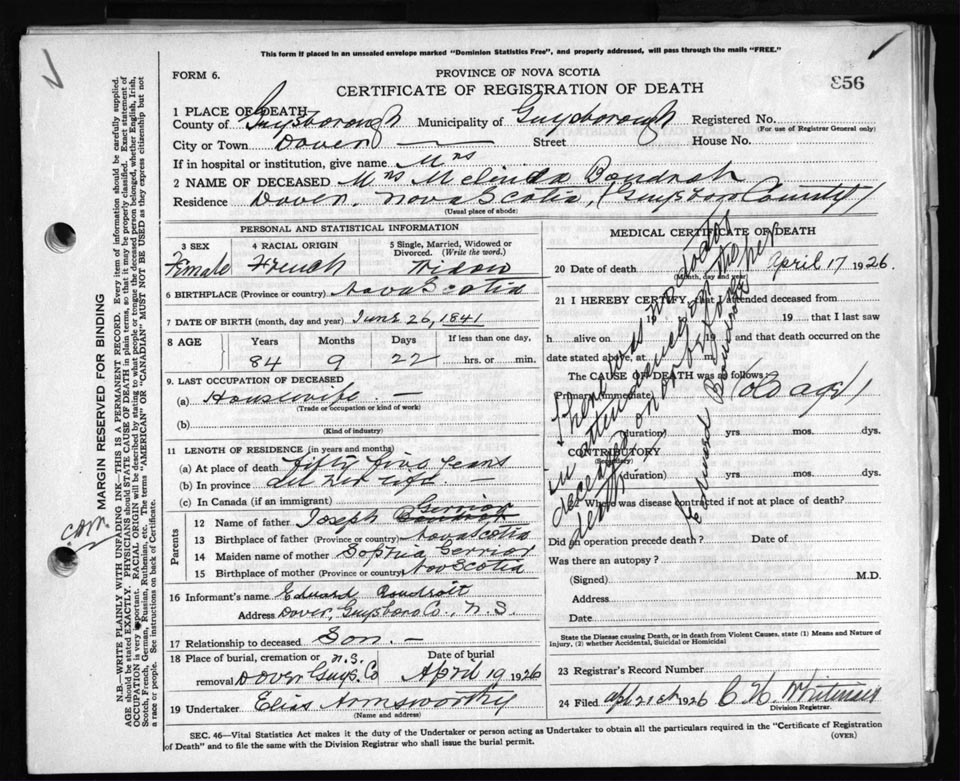 This form if placed in an unsealed envelope marked "Dominion Statistics Free", and properly addressed, will pass through the mails "FREE."
FORM 6.
PROVINCE OF NOVA SCOTIA
CERTIFICATE OF REGISTRATION OF DEATH
856
1 PLACE OF DEATH
County of Guysborough Municipality of Guysborough Registered No.
(For use of Registrar General only)
City or Town Dover — Street House No.
If in hospital or institution, give name Mrs
2 NAME OF DECEASED Mrs Melinda Boudrot
Residence Dover, Nova Scotia, (Guysboro County)
(Usual place of abode)
PERSONAL AND STATISTICAL INFORMATION
3 SEX 4 RACIAL ORIGIN 5 Single, Married, Widowed or Divorced. (Write the word.)
Female French Widow
6 BIRTHPLACE (Province or country) Nova Scotia
7 DATE OF BIRTH (month, day and year) June 26, 1841
8 AGE Years Months Days If less than one day,
84 9 22 hrs. or min.
9. LAST OCCUPATION OF DECEASED
(a) Housewife. —
(Trade or occupation or kind of work)
(b)
(Kind of industry)
11 LENGTH OF RESIDENCE (in years and months)
(a) At place of death fifty five years
(b) In province all her life. —
(c) In Canada (if an immigrant)
Parents
12 Name of father Joseph Gerrior
13 Birthplace of father (Province or country) Nova Scotia
14 Maiden name of mother Sophia Gerrior
15 Birthplace of mother (Province or country) Nov Scotia
16 Informant's name Edward Boudroit
Address Dover, Guysboro Co., N.S.
17 Relationship to deceased Son. —
18 Place of burial, cremation or removal Dover Guys. Co N.S.
Date of burial April 19 1926
19 Undertaker Elias Armsworthy
(Name and address)
MEDICAL CERTIFICATE OF DEATH
20 Date of death April 17 1926.
(Month, day and year)
21 I HEREBY CERTIFY, that I attended deceased from
19 19 that I last saw
h alive on 19 and that death occurred on the
date stated above, at m.
The CAUSE OF DEATH was as follows:
Primary (immediate) (old age)
(duration) yrs mos. dys.
CONTRIBUTORY
(Secondary)
(duration) yrs. mos. dys.
22 Where was disease contracted if not at place of death?
Did an operation precede death? Date of
Was there an autopsy?
(Signed) M.D.
Address
Date
There was no doctor
in attendance on the
deceased on or before her
death
Edward Boudroit
State the Disease causing Death, or in death from Violent Causes, state (1) Means and Nature of Injury, (2) whether Accidental, Suicidal or Homicidal
23 Registrar's Record Number
24 Filed apl 21st 1926 C H Whitman
Division Registrar.
SEC. 46—Vital Statistics Act makes it the duty of the Undertaker or person acting as Undertaker to obtain all the particulars required in the "Certificate of Registration of Death" and to file the same with the Division Registrar who shall issue the burial permit.
(OVER)
MARGIN RESERVED FOR BINDING
N.B.—WRITE PLAINLY WITH UNFADING INK—THIS IS A PERMANENT RECORD. Every item of information should be carefully supplied.
AGE should be stated EXACTLY. PHYSICIANS should STATE CAUSE OF DEATH in plain terms, so that it may be properly classified. Exact statement of
OCCUPATION is very important. RACIAL ORIGIN will be described by stating to what people or tongue the deceased person belonged, whether English, Irish,
Scotch, French, German, Russian, Ruthenian, etc. The terms "AMERICAN" or "CANADIAN" MUST NOT BE USED as they express citizenship but not
a race or people. See instructions on back of Certificate.